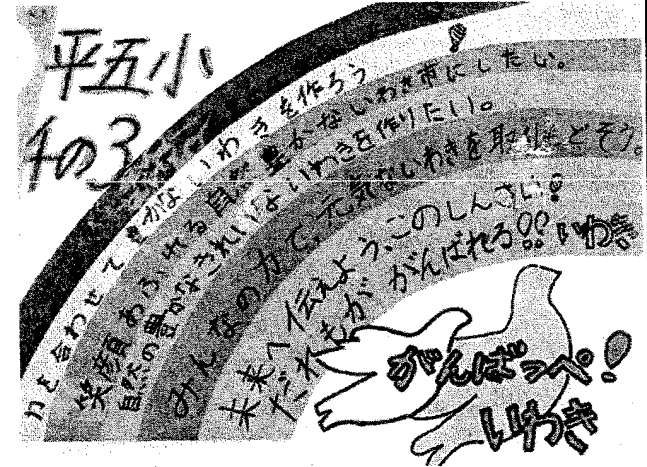 平五小
4の3
力を合わせて豊かないわきを作ろう!
笑顔あふれる自然豊かないわき市にしたい。
自然の豊かなきれいないわきを作りたい。
みんなの力で、元気ないわきを取りもどそう。
未来へ伝えよう、このしんさい!
だれもががんばれる!!いわき
がんばっぺ!
いわき